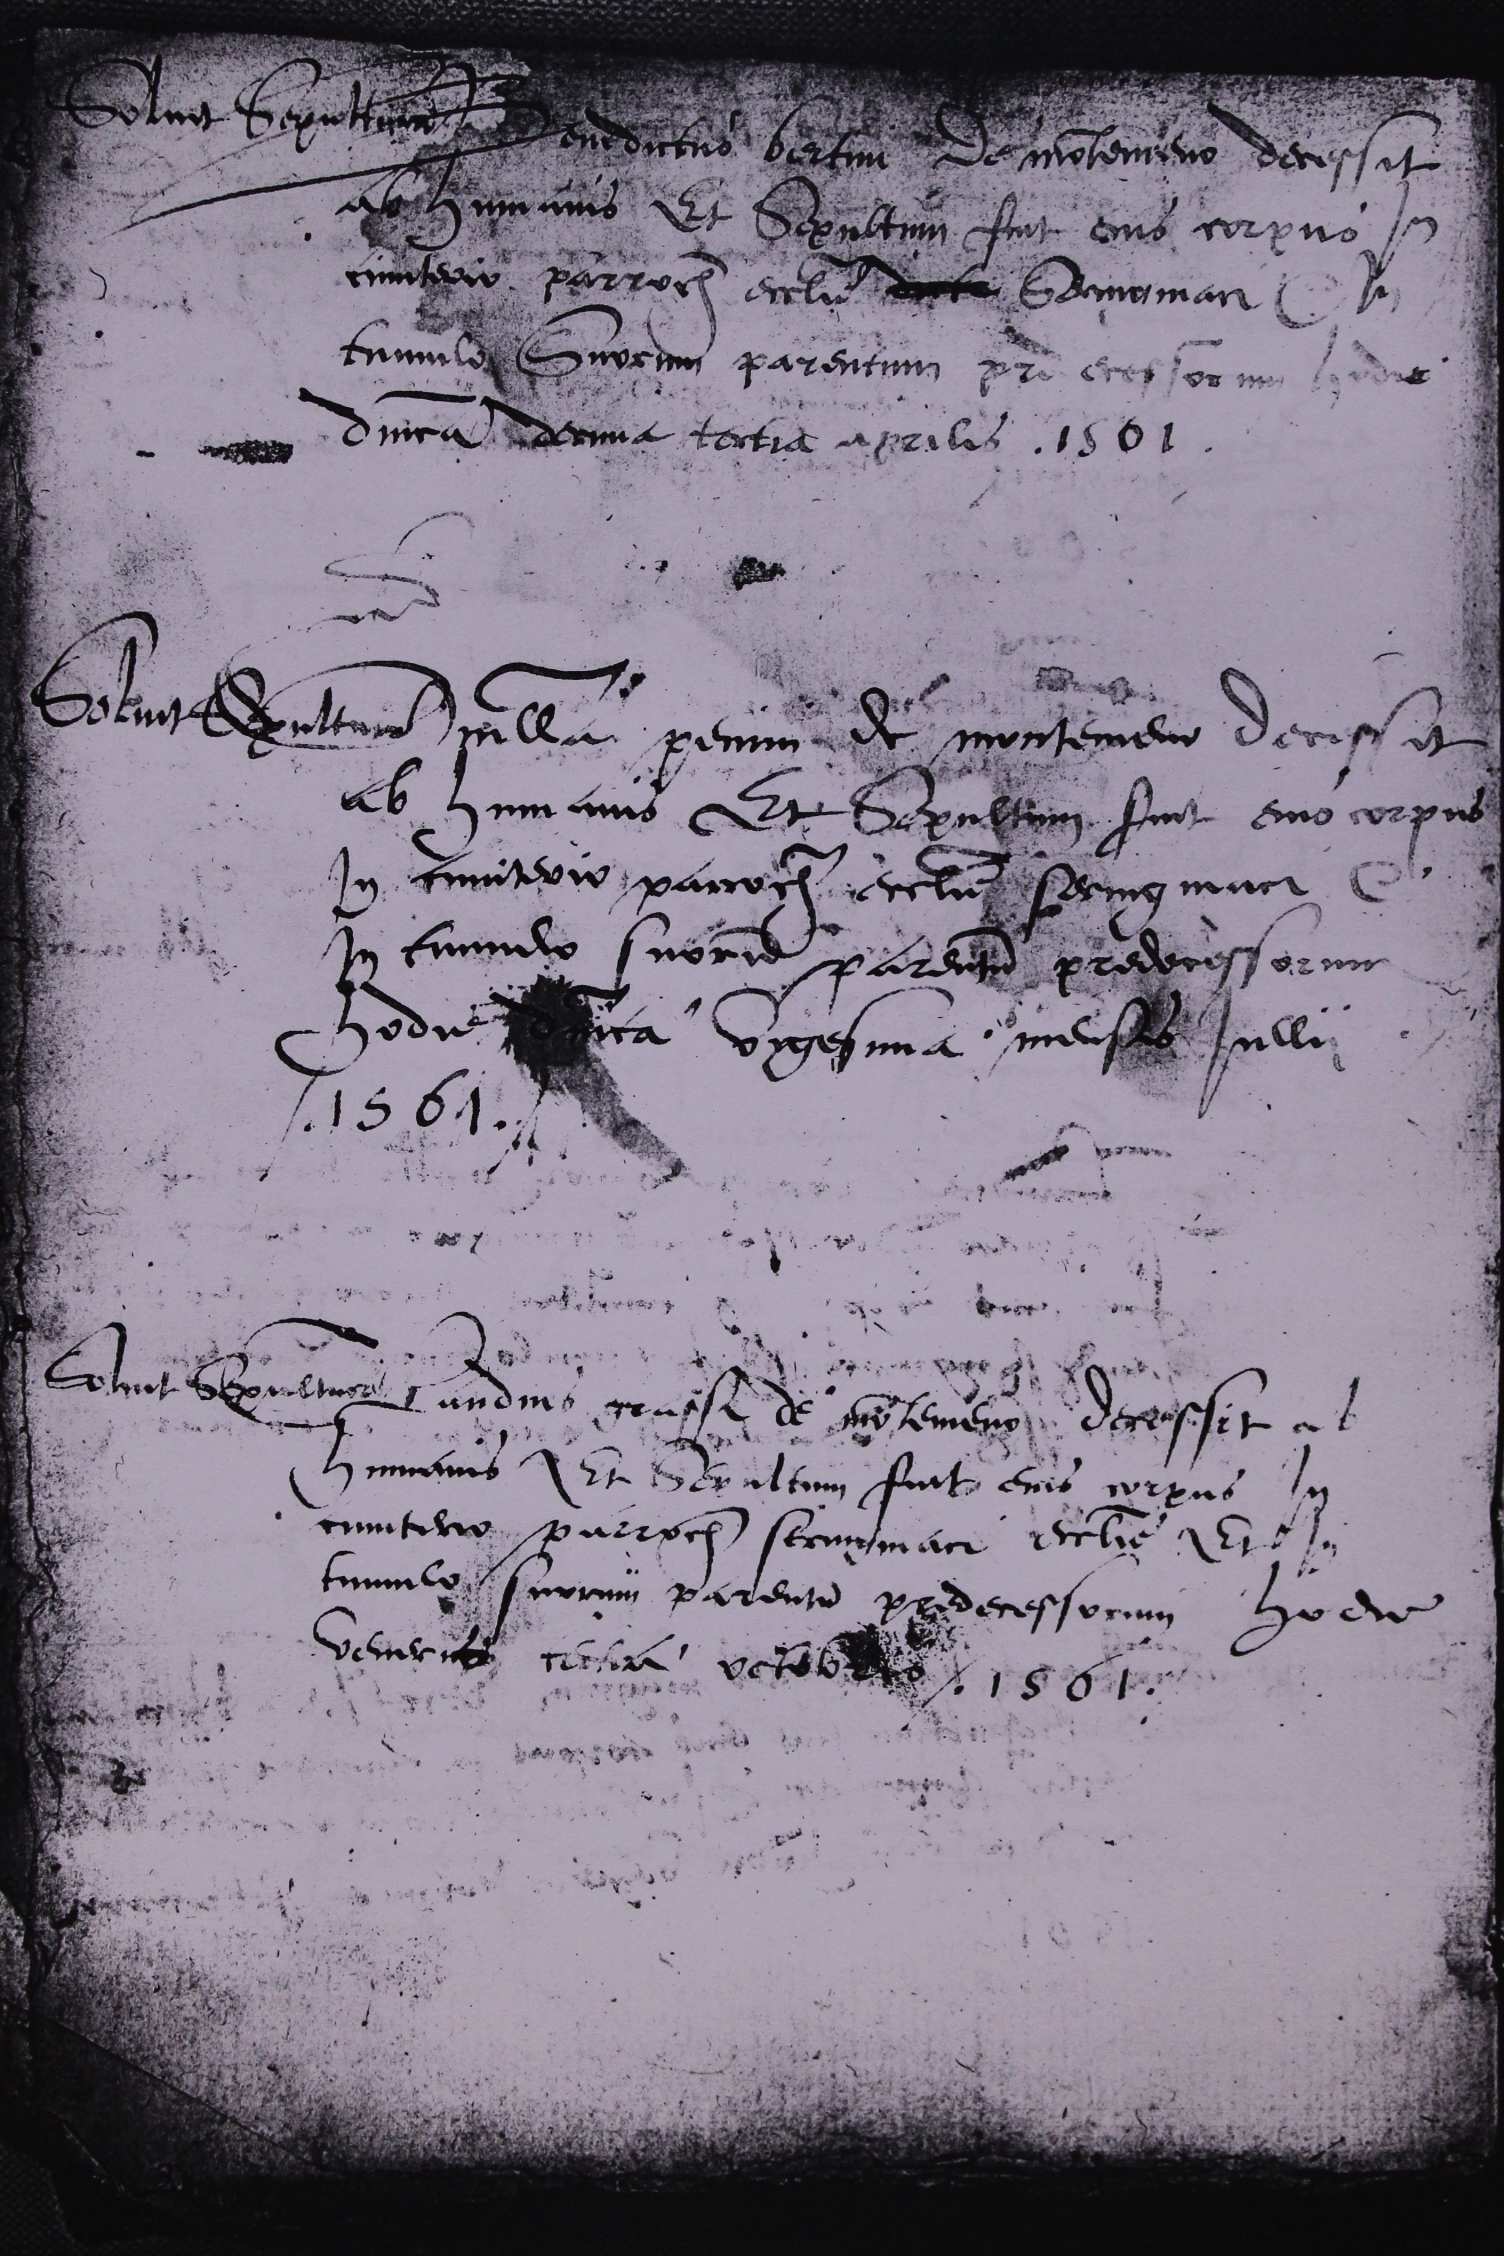 Solvit Sepulturam
Benedictus bertini de mōtemeno decessit
ab humanis Et Sepultum fuit eius corpus In
cimiterio parroch ecclie Sermgmaci Et In
tumulo Suorum parentum predecessorum hodie
dnica decima tertia aprilis .1561.
Solvit Sepulturam
Iullia penini de montemeno decessit
ab humanis Et Sepultum fuit eius corpus
In cimiterio parroch ecclie sermgmaci Et
In tumulo suorū parentū predecessorum
hodie dnica vygesima mensis Jullii
.1561.
Solvit Sepulturam
Claudius grassi de mōtemeno decessit ab
humanis Et Sepultum fuit eius corpus In
cimiterio parroch sermgmaci ecclie Et In
tumulo suorum parentū predecessorum hodie
veneris tertia octobris .1561.